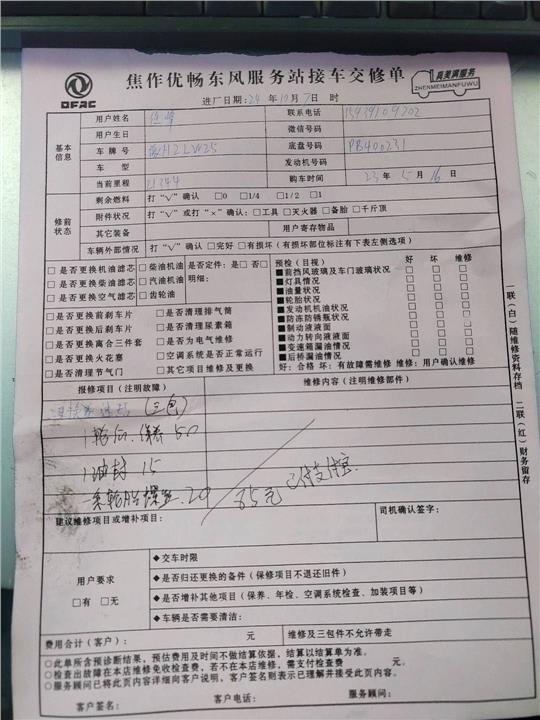 DFAC
焦作优畅东风服务站接车交修单
真美满服务
ZHENMEIMANFUWU
进厂日期: 24 年 10 月 7 日 时
基本信息
用户姓名 联系电话 15939109202
用户生日 微信号码
车牌号 底盘号码 PB400231
车型 发动机号码
当前里程 21344 购车时间 23 年 5 月 16 日
修前状态
剩余燃料 打“√”确认 □0 □1/4 □1/2 □1
附件状况 打“√”或打“×”确认:□工具 □灭火器 □备胎 □千斤顶
其它装备 用户寄存物品
车辆外部情况 打“√”确认 □完好 □有损坏(有损坏部位标注有下表左侧选项)
□是否更换机油滤芯 □柴油机油 是否定件:是□ 否□
□是否更换柴油滤芯 □汽油机油 明细:
□是否更换空气滤芯 □齿轮油
□是否更换前刹车片 □是否清理排气筒
□是否更换后刹车片 □是否清理尿素箱
□是否更换离合三件套 □是否为电气维修
□是否更换火花塞 □空调系统是否正常运行
□是否清理节气门 □其它项目维修及更换
预检(目视) 好 坏 维修
■前挡风玻璃及车门玻璃状况 □ □ □
■灯具情况 □ □ □
■油量状况 □ □ □
■轮胎状况 □ □ □
■发动机机油状况 □ □ □
■防冻防锈瓶状况 □ □ □
■制动液液面 □ □ □
■动力转向液液面 □ □ □
■变速箱漏油情况 □ □ □
■后桥漏油情况 □ □ □
好:合格 坏:有故障需维修 维修:用户确认维修
报修项目(注明故障) 维修内容(注明维修部件)
(三包)
50
1油封 15
20
85元 已付支付宝
建议维修项目或增补项目: 司机确认签字:
用户要求
□有 □无
◆交车时限
◆是否归还更换的备件(保修项目不退还旧件)
◆是否增补其他项目(保养、年检、空调系统检查、加装项目等)
◆车辆是否需要清洁:
费用合计(客户): 元 维修及三包件不允许带走
○此单所含预诊断结果,预估费用及时间不做结算依据,结算以结算单为准。
○检查出故障在本店维修免收检查费,若不在本店维修,需支付检查费 元。
○服务顾问已将此页内容详细向客户说明,客户签名则表示已理解并接受此页内容。
客户签名: 客户电话: 服务顾问:
一联(白)随维修资料存档 二联(红)财务留存